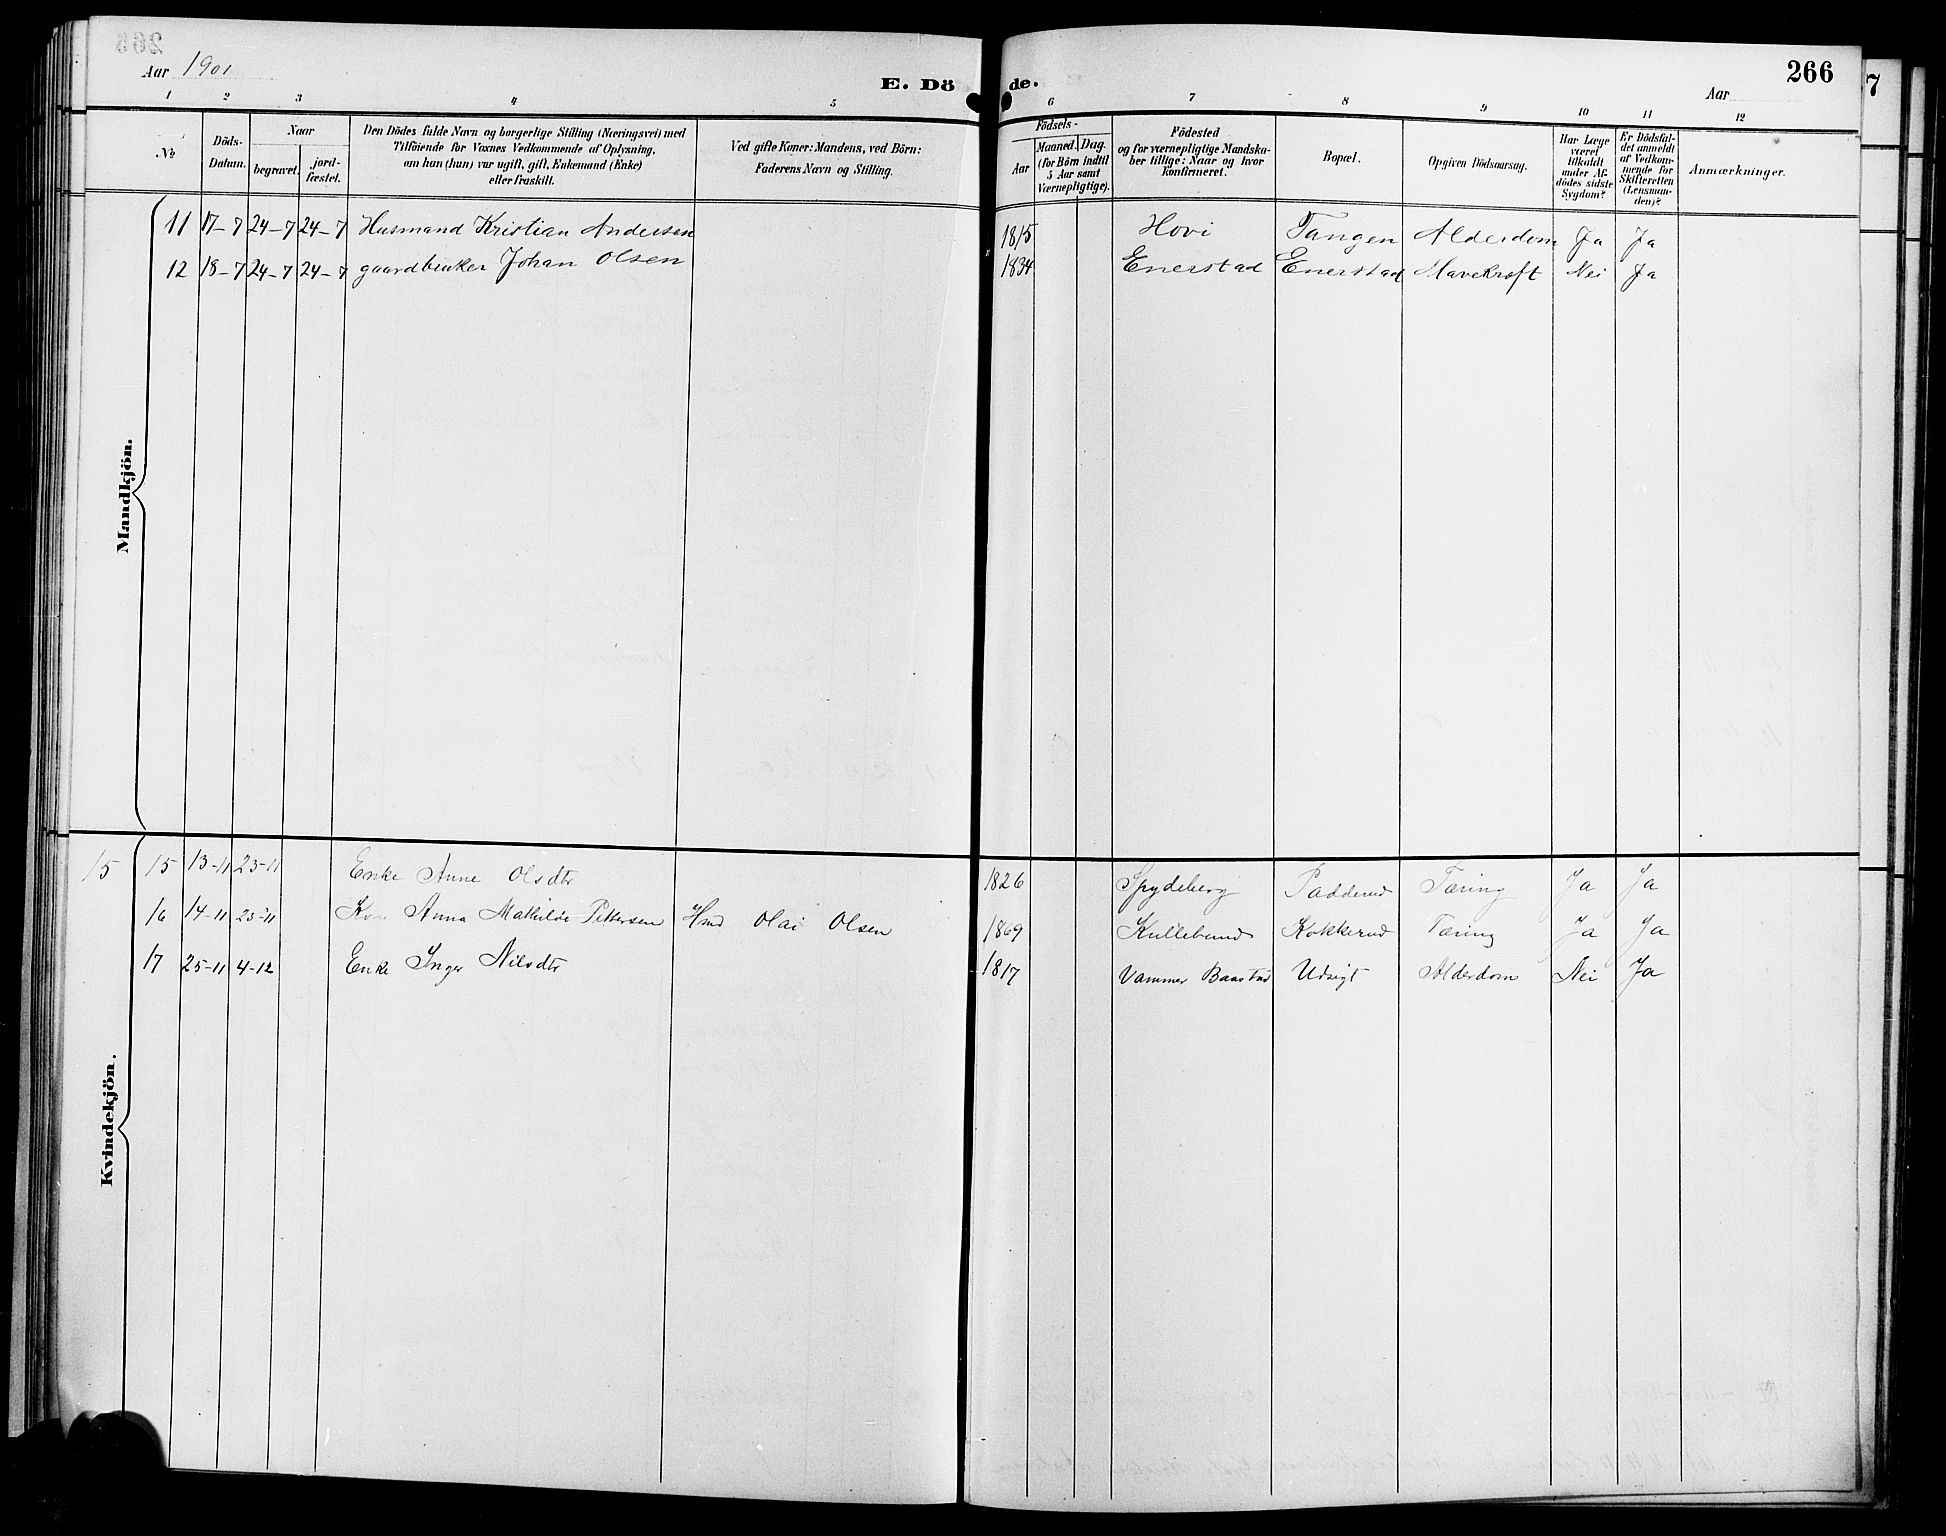 Aar 1901
E. Döde.
Aar
266
1 2 3 4 5 6 7 8 9 10 11 12
No
Döds-Datum.
Naar
begravet.
jord-fæstet.
Den Dödes fulde Navn og borgerlige Stilling (Næringsvei) med
Tilföiende for Voxnes Vedkommende af Oplysning,
om han (hun) var ugift, gift, Enkemand (Enke)
eller fraskilt.
Ved gifte Koner: Mandens, ved Börn:
Faderens Navn og Stilling.
Födsels-
Aar
Maaned.
Dag.
(for Börn indtil
5 Aar samt
Værnepligtige).
Födested
og for værnepligtige Mandska-
ber tillige: Naar og hvor
konfirmeret.
Bopæl.
Opgiven Dödsaarsag.
Har Læge
været
tilkaldt
under Af-
dödes sidste
Sygdom?
Er Dödsfal-
det anmeldt
af Vedkom-
mende for
Skifteretten
(Lensman-
den)?
Anmærkninger.
Mandkjön.
11 17-7 24-7 24-7 Husmand Kristian Andersen 1815 Hovi Tangen Alderdom Ja Ja
12 18-7 24-7 24-7 gaardbruker Johan Olsen 1834 Enerstad Enerstad Mavekræft Nei Ja
Kvindekjön.
15 15 13-11 23-11 Enke Anne Olsdtr 1826 Spydeberg Padderud Tæring Ja Ja
16 14-11 23-11 Kone Anna Mathilde Pettersen Hmd Olai Olsen 1869 Kullebund Kokkerud Tæring Ja Ja
17 25-11 4-12 Enke Inger Nilsdtr 1817 Vammer Baastad Udsigt Alderdom Nei Ja